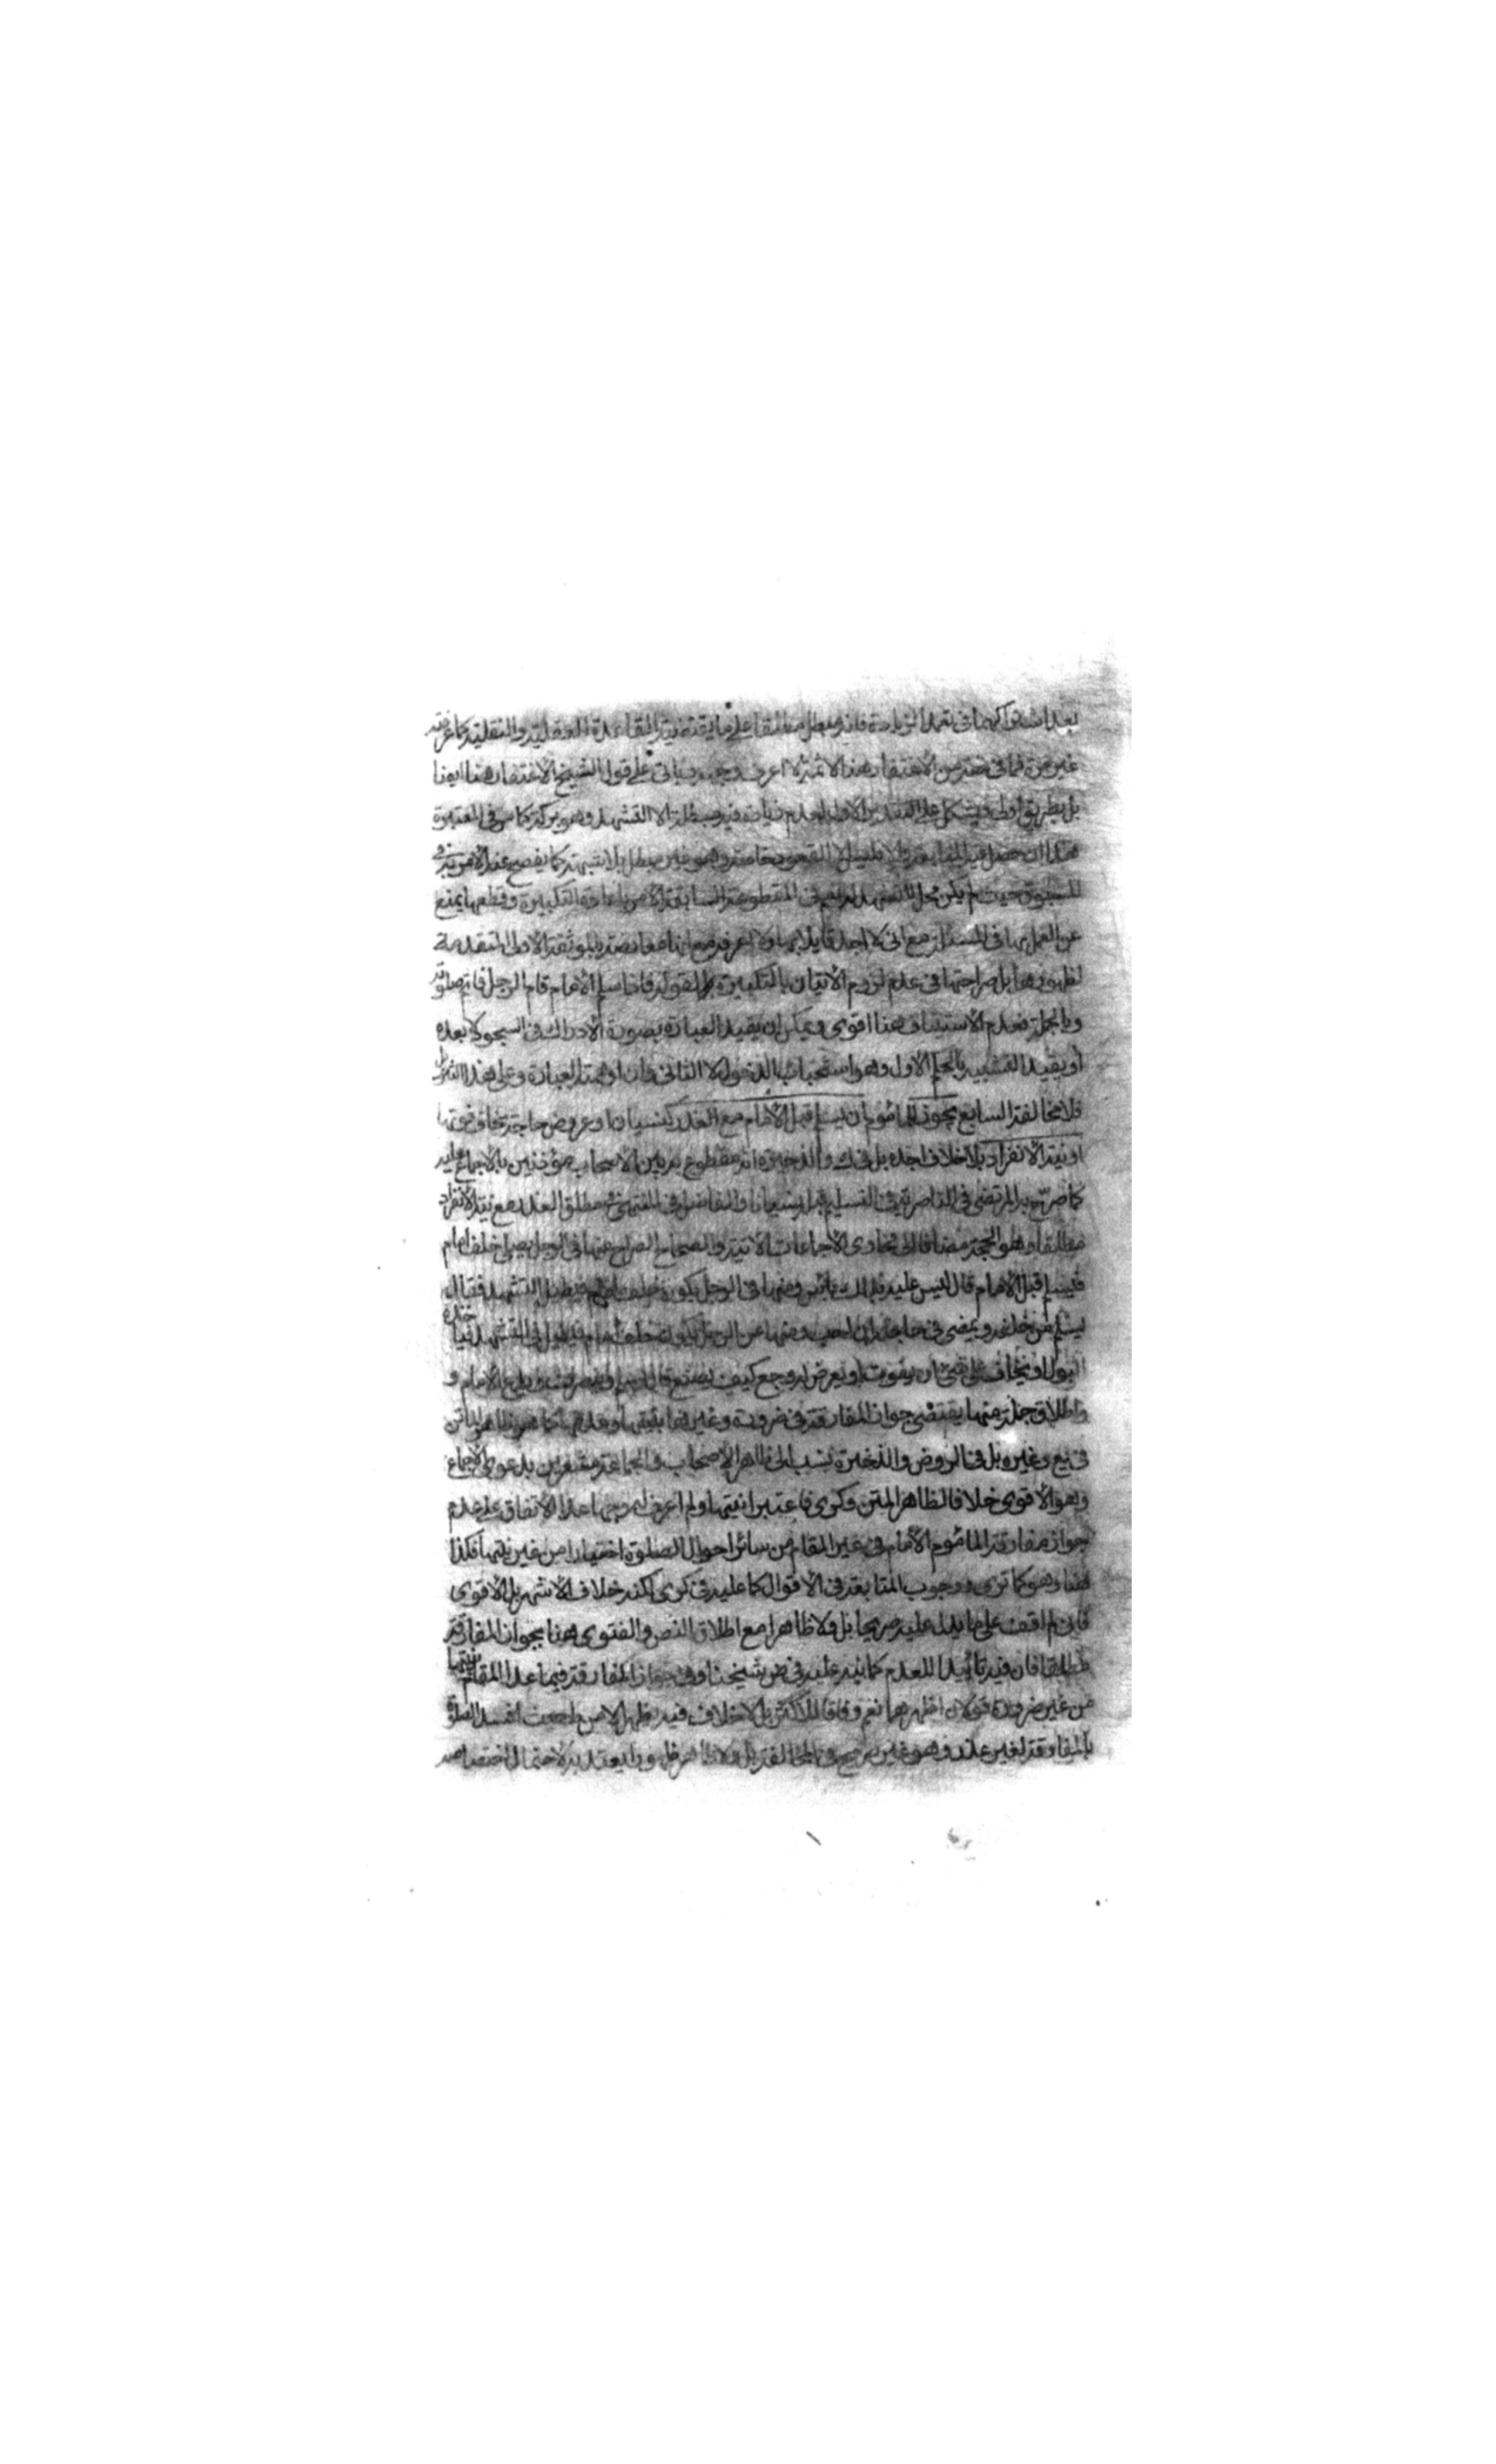 بعد اشتراكهما فى تعمد الزيادة فانه مبطل مطلقا على ما يقتضيه القاعدة العقلية والنقلية كما عرفته
غير مرة فما فى من الاغتفار هنا لا اعرف وجهه وياتى على قول الشيخ الاغتفار هنا ايضا
بل بطريق اولى ويشكل على التقدير الاول لعدم زيادة فيه مبطلة الا التشهد وهو بركة كما مر فى المعتبرة
هذا ان حصل فيه المتابعة والا فليس الا القعود خاصة وهو غير مبطل بلا شبهة كما يفصح عنه الامر به فى
المسبوق حيث لم يكن محل للتشهد له نعم فى المقطوعة السابقة الامر باعادة التكبيرة وقطعها يمنع
عن العمل بها فى المسئلة مع انى لا اجد قايلا بها ولا اعرفه مع انها معارضة بالموثقة الاولى المتقدمة
لظهورها بل صراحتها فى عدم لزوم الاتيان بالتكبيرة لقوله فاذا سلم الامام قام الرجل فاتم صلوته
وبالجملة فعدم الاستيناف هنا اقوى ويمكن ان يقيد العبارة بصورة الادراك فى السجود لا بعده
او يقيد التشبيه بالحكم الاول وهو استحباب الدخول لا الثانى وان اوهمته العبارة وعلى هذا
فلا مخالفة السابع يجوز للمأموم ان يسلم قبل الامام مع العذر كنسيان او عروض حاجة يخاف فوتها
او نية الانفراد بلا خلاف اجده بل فى ك والذخيرة انه مقطوع به بين الاصحاب مؤذنين بالاجماع عليه
كما صرح به المرتضى فى الناصرية فى التسليم قبله نسيانا والفاضل فى المنتهى فى مطلق العذر مع نية الانفراد
مطلقا وهو الحجة مضافا الى فحاوى الاجماعات الاتية والصحاح الصراح منها فى الرجل يصلى خلف امام
فيسلم قبل الامام قال ليس عليه بذلك بأس ومنها فى الرجل يكون خلف امام فيطيل التشهد فقال
يسلم من خلفه ويمضى فى حاجته ان احب ومنها عن الرجل يكون خلف امام فيطيل فى التشهد فياخذه
البول او يخاف على شئ ان يفوت او يعرض له وجع كيف يصنع قال يسلم وينصرف ويدع الامام و
واطلاق جملة منها يقتضى جواز المفارقة فى ضرورة وغيرها بنيتها وبعدمها كما هو ظاهر الماتن
فى يع وغيره بل فى الروض والذخيرة نسب الى ظاهر الاصحاب والجماعة مشعرين بدعوى الاجماع
وهو الاقوى خلافا لظاهر المتن وكرى فاعتبرا نيتها ولم اعرف له وجها عدا الاتفاق على عدم
جواز مفارقة المأموم الامام فى غير المقام من سائر احوال الصلوة اختيارا من غير نيتها فكذا
هنا وهو كما ترى ووجوب المتابعة فى الاقوال كما عليه فى كرى لكنه خلاف الاشهر بل الاقوى
فانى لم اقف على ما يدل عليه صريحا بل ولا ظاهرا مع اطلاق النص والفتوى هنا بجواز المفارقة
مطلقا فان فيه تأييدا للعدم كما نبه عليه فى ض شيخنا وفى جواز المفارقة فيما عدا المقام بنيتها
من غير ضرورة قولان اظهرهما نعم وفاقا للاكثر بل لا خلاف فيه يظهر الا من
بالمفارقة لغير عذر وهو غير صريح فى المخالفة بل ولا ظاهر لاحتمال اختصاصه